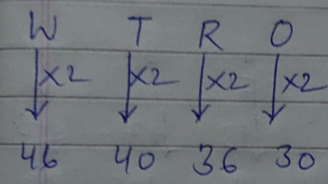 W T R O
×2 ×2 ×2 ×2
46 40 36 30